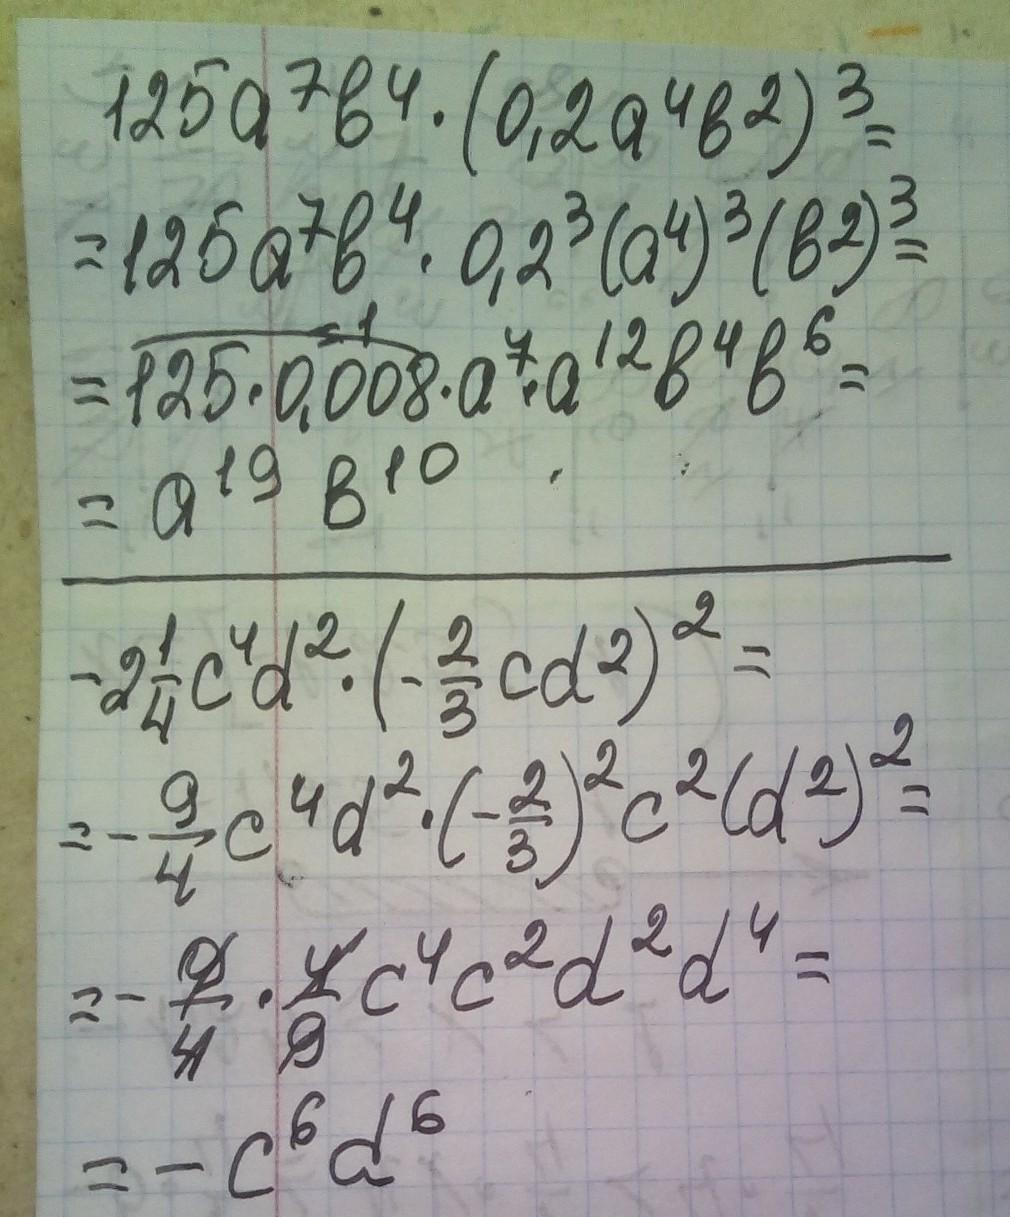 125a⁷b⁴·(0,2a⁴b²)³=
=125a⁷b⁴·0,2³(a⁴)³(b²)³=
=125·0,008·a⁷·a¹²b⁴b⁶=
=1
=a¹⁹b¹⁰
-2 1/4 c⁴d²·(-2/3 cd²)²=
=-9/4 c⁴d²·(-2/3)²c²(d²)²=
=-9/4·4/9 c⁴c²d²d⁴=
=-c⁶d⁶